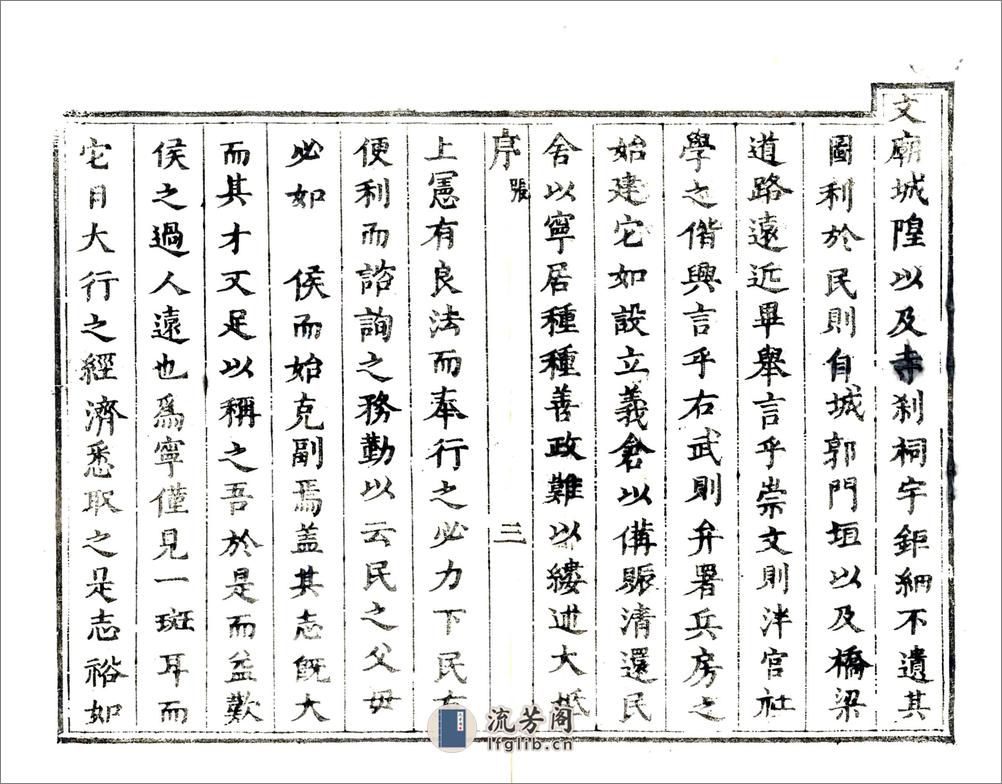 文廟城隍以及寺刹祠宇鉅細不遺其
圖利於民則自城郭門垣以及橋梁
道路遠近畢舉言乎崇文則泮宫社
學之偕興言乎右武則弁署兵房之
始建它如設立義倉以備賑清還民
舍以寧居種種善政難以縷述大抵
序 張 三
上憲有良法而奉行之必力下民有
便利而諮詢之務勤以云民之父母
必如 侯而始克副焉盖其志旣大
而其才又足以稱之吾於是而益歎
侯之過人遠也爲寧僅見一斑耳而
它日大行之經濟悉取之是志裕如
流芳阁
lfglib.cn